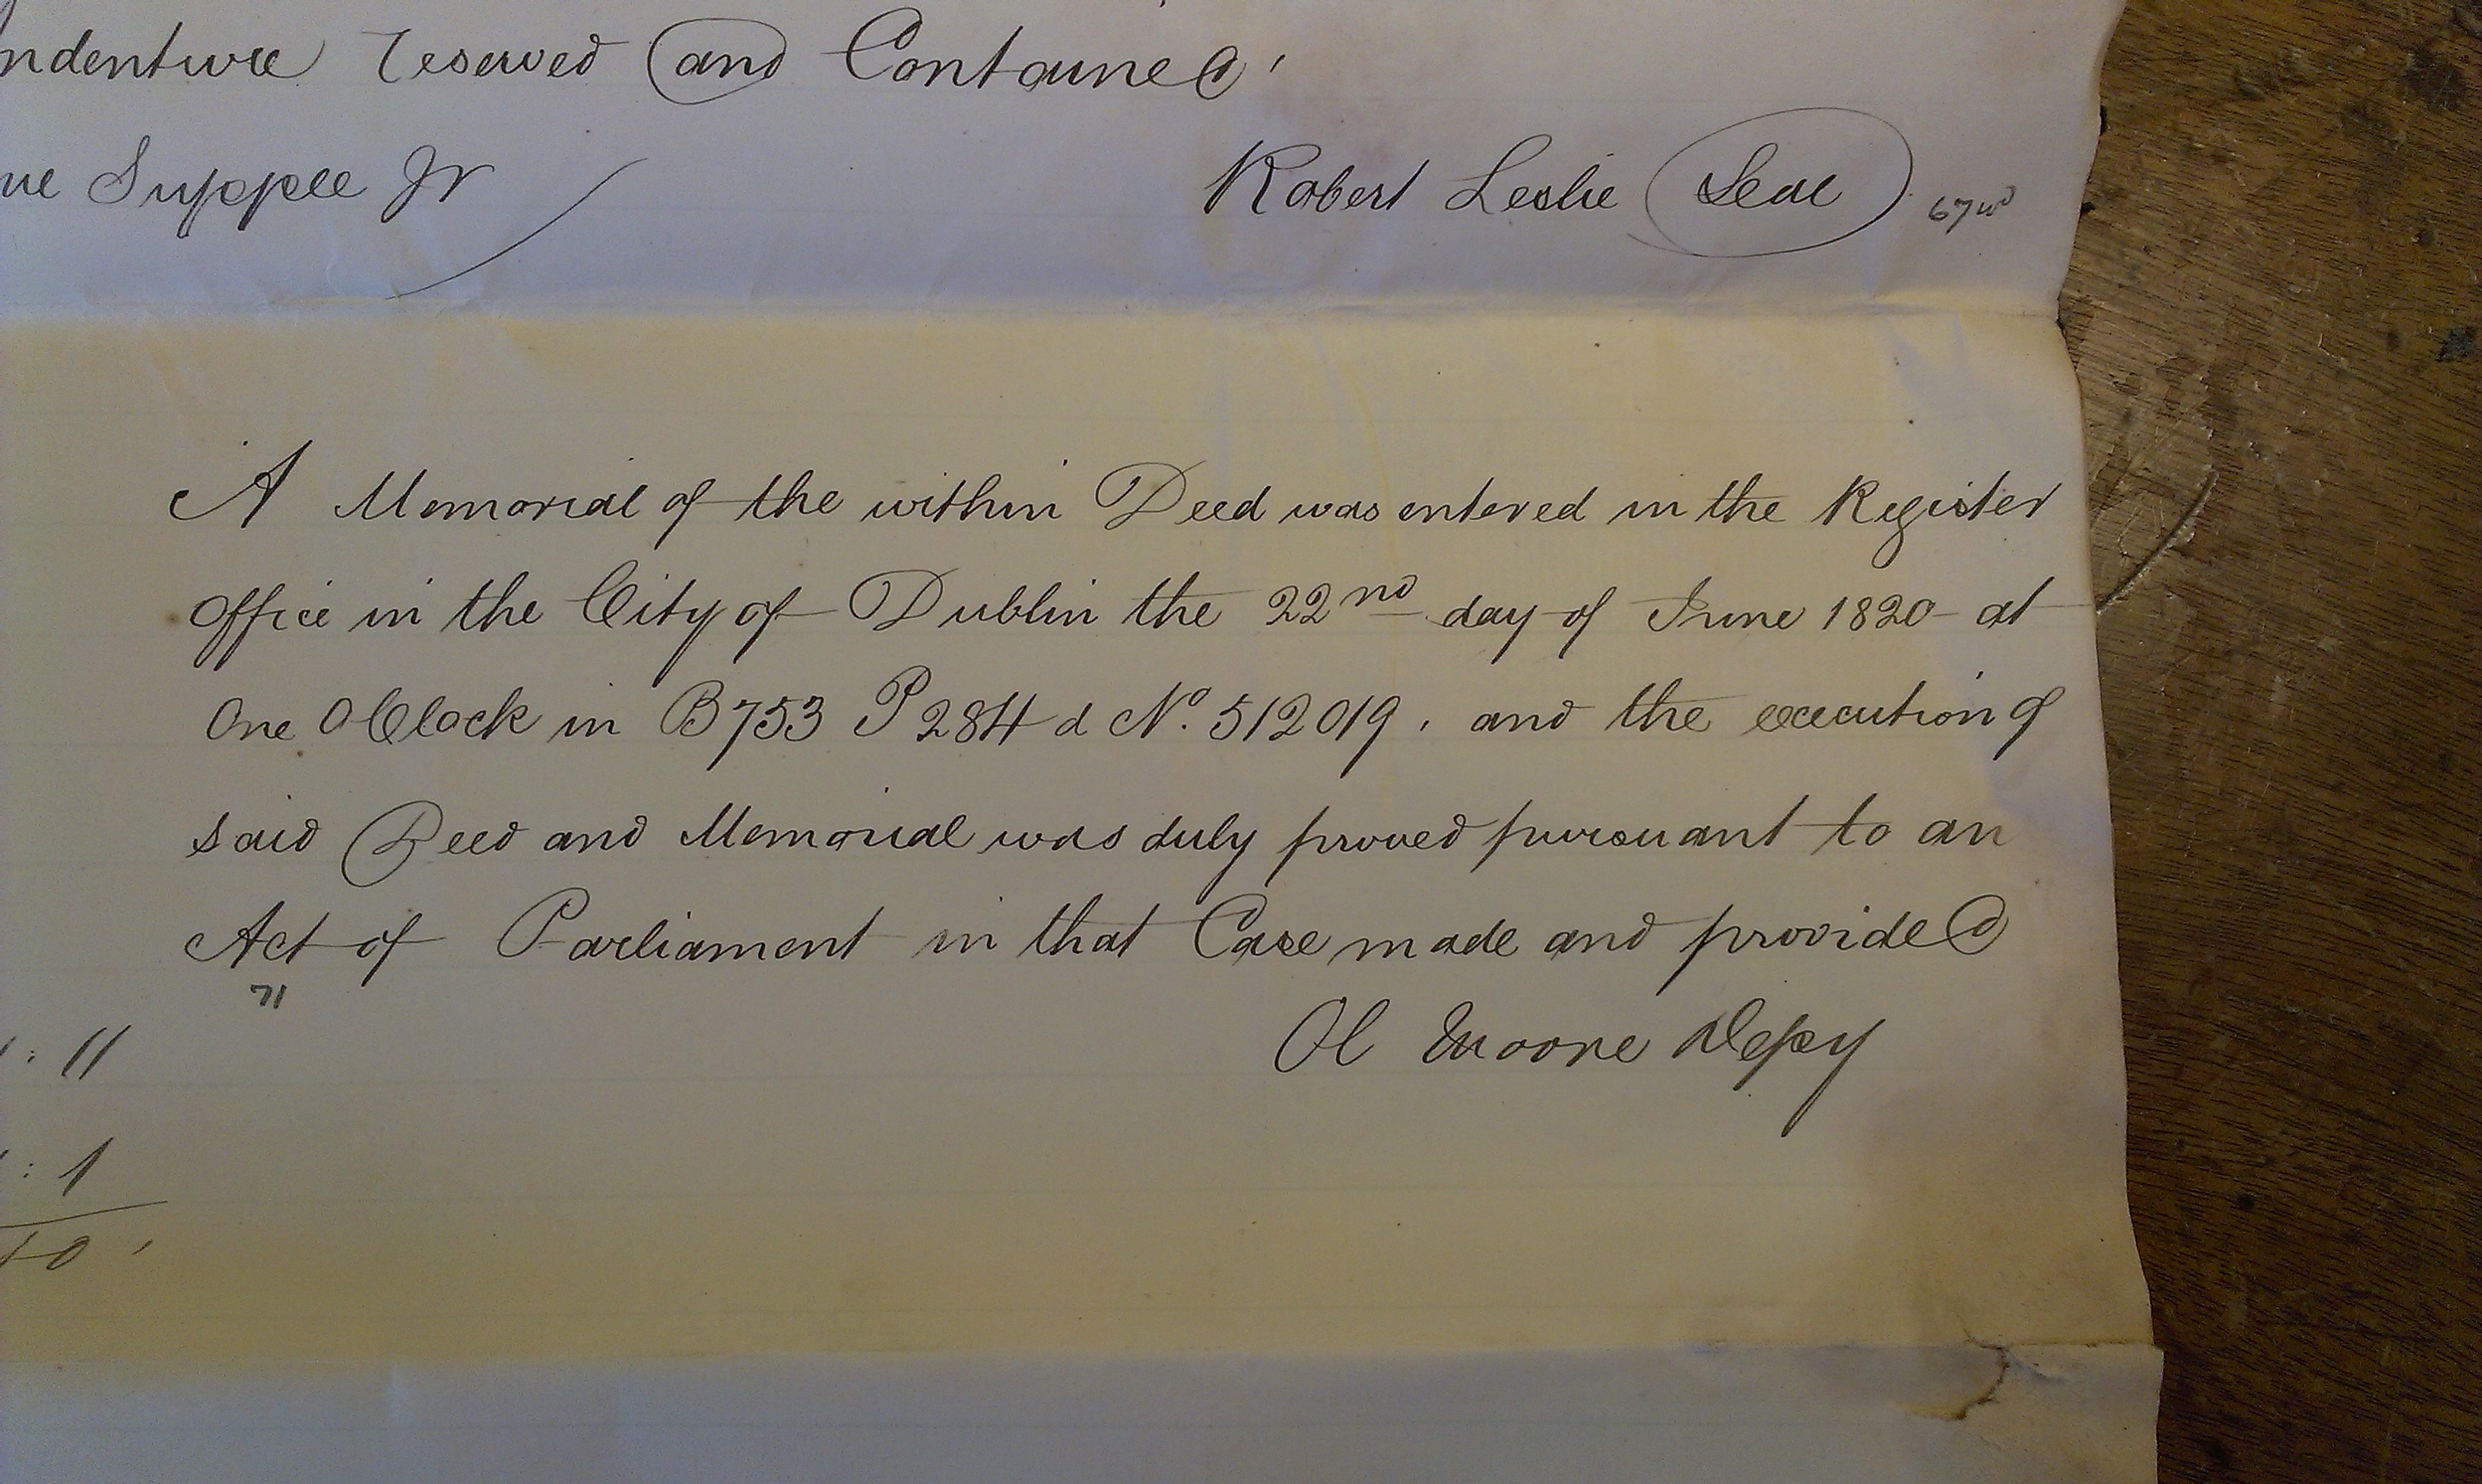 ndenture reserved and Contained,
ne Supple Jr Robert Leslie Seal 67wd
A Memorial of the within Deed was entered in the Register
office in the City of Dublin the 22nd day of June 1820 at
One OClock in B753 P284 d No. 512019, and the execution of
said Deed and Memorial was duly proved pursuant to an
Act of Parliament in that Case made and provided
71
Moore Depy
: 11
: 1